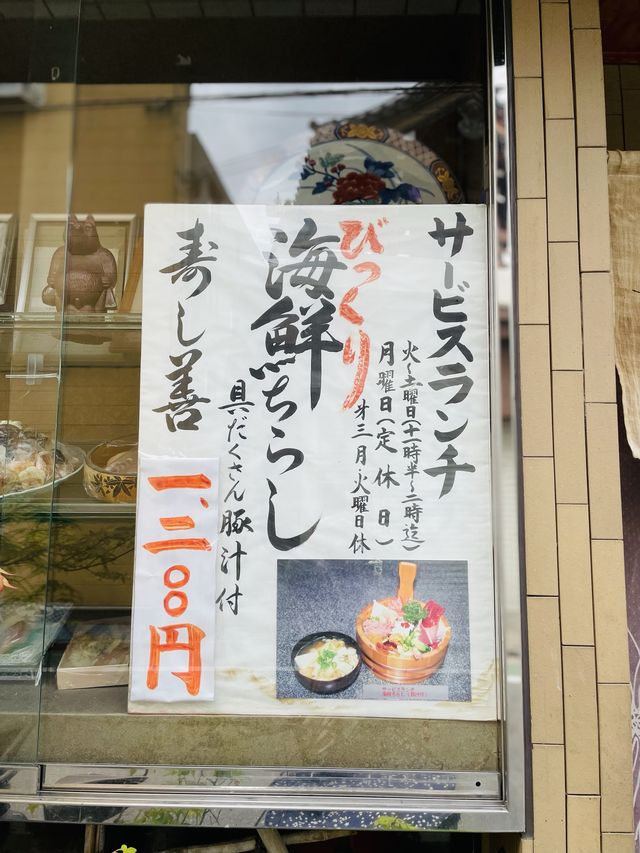 サービスランチ
火〜土曜日(十一時半〜二時迄)
月曜日(定休日)
第三月・火曜日休
びっくり
海鮮ちらし
具だくさん豚汁付
寿し善
一、三〇〇円
サービスランチ